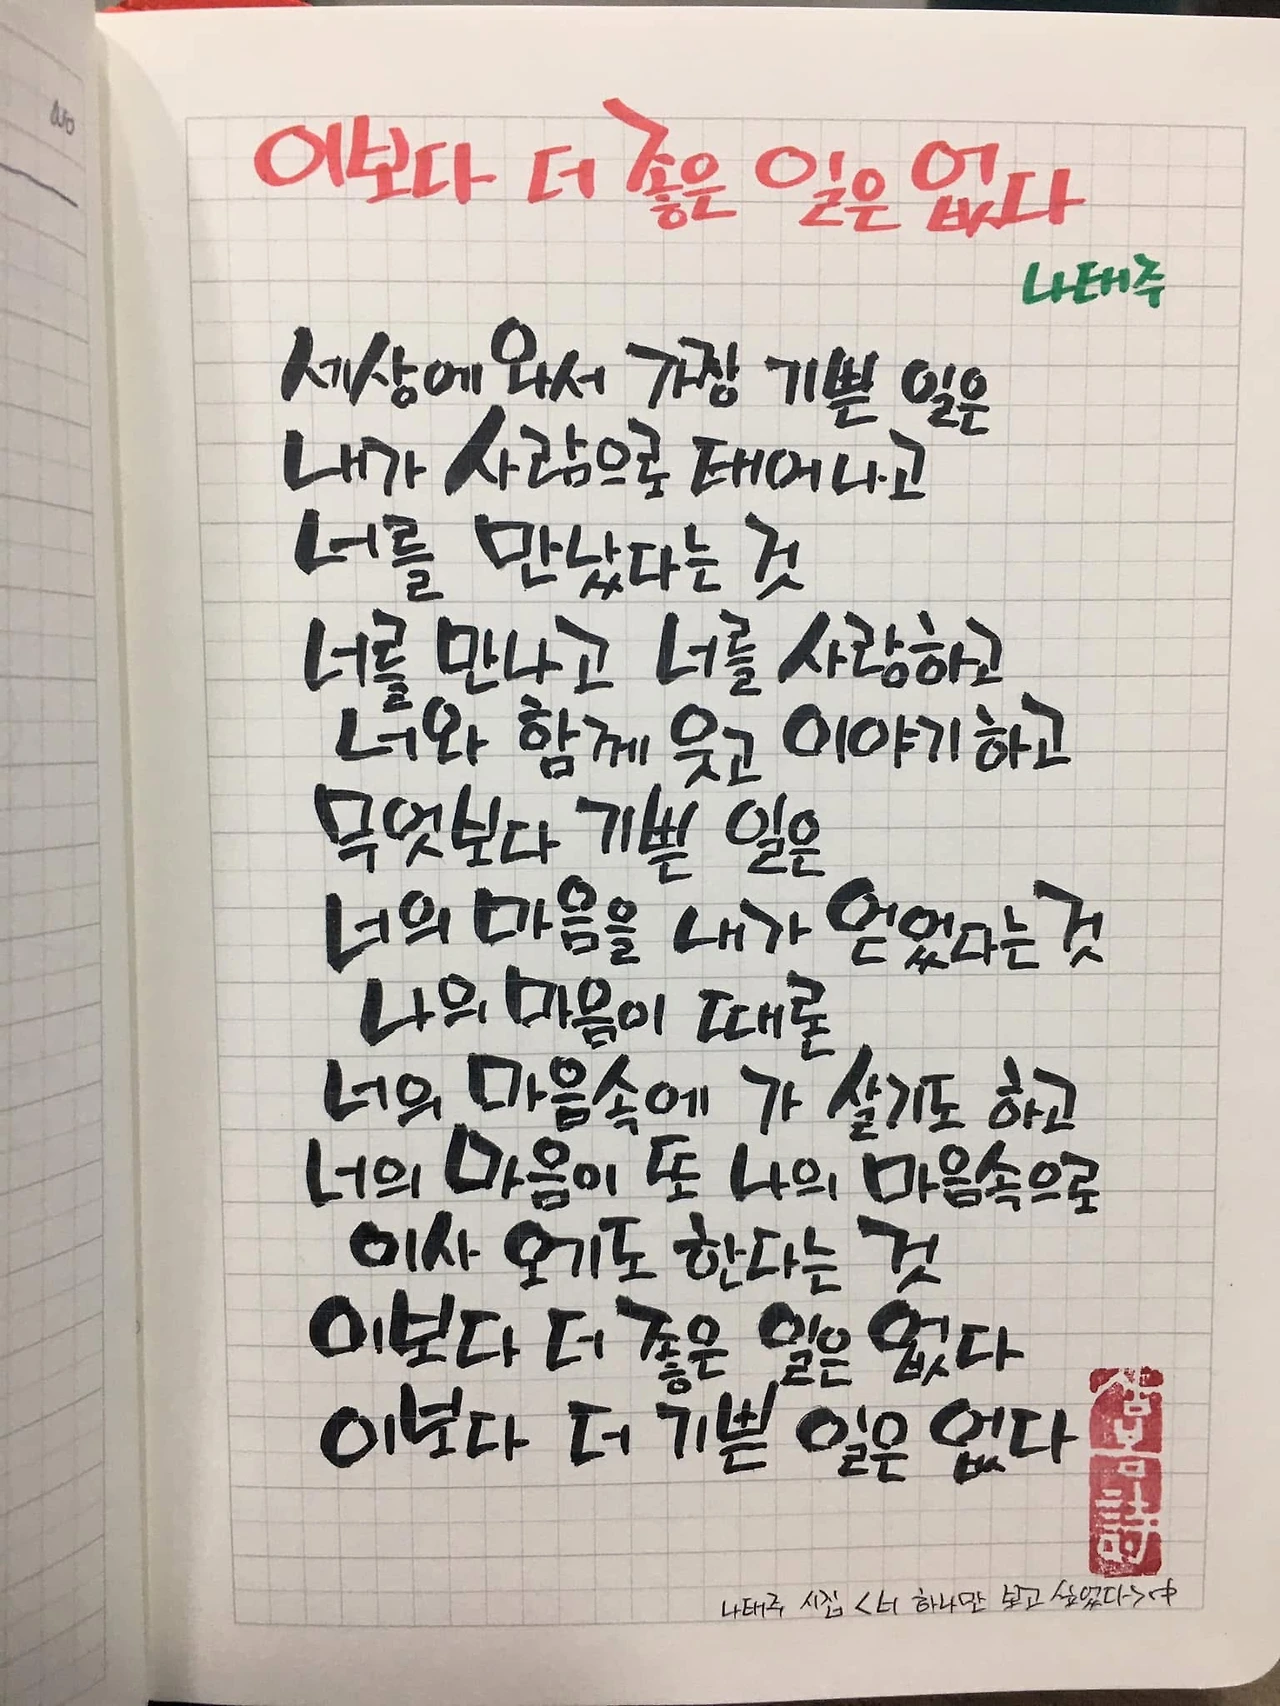 이보다 더 좋은 일은 없다
나태주
세상에 와서 가장 기쁜 일은
내가 사람으로 태어나고
너를 만났다는 것
너를 만나고 너를 사랑하고
너와 함께 웃고 이야기하고
무엇보다 기쁜 일은
너의 마음을 내가 얻었다는 것
나의 마음이 때론
너의 마음속에 가 살기도 하고
너의 마음이 또 나의 마음속으로
이사 오기도 한다는 것
이보다 더 좋은 일은 없다
이보다 더 기쁜 일은 없다
나태주 시집 <너 하나만 보고 싶었다> 中